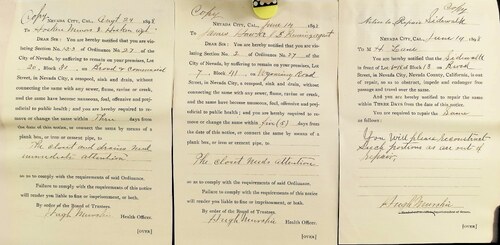 Copy
NEVADA CITY, CAL. Sept 24 1898
To
DEAR SIR: You are hereby notified that you are vio-
lating Section 123 of Ordinance No. 27 of the City of
Nevada City, by suffering to remain on your premises, Lot
20, Block 31 on Broad & Commercial
Street, in Nevada City, a cesspool, sink and drain, without
connecting the same with any sewer, flume, ravine or creek,
and the same have become nauseous, foul, offensive and preju-
dicial to public health; and you are hereby required to re-
move or change the same within Three days from
the date of this notice, or connect the same by means of a
plank box, or iron or cement pipe, to
The closet and drains need
immediate attention
so as to comply with the requirements of said Ordinance.
Failure to comply with the requirements of this notice
will render you liable to fine or imprisonment, or both.
By order of the Board of Trustees.
Hugh Murchie
Health Officer.
[OVER]
Copy
NEVADA CITY, CAL. June 14 1898
To
DEAR SIR: You are hereby notified that you are vio-
lating Section 2 of Ordinance No. 27 of the
City of Nevada City, by suffering to remain on your premises, Lot
7, Block 41, on Wyoming Road
Street, in Nevada City, a cesspool, sink and drain, without
connecting the same with any sewer, flume, ravine or creek,
and the same have become nauseous, foul, offensive and prej-
udicial to public health; and you are hereby required to re-
move or change the same within five (5) days from
the date of this notice, or connect the same by means of a
plank box, or iron or cement pipe, to
The closet needs attention
so as to comply with the requirements of said Ordinance.
Failure to comply with the requirements of this notice
will render you liable to fine or imprisonment, or both.
By order of the Board of Trustees.
Hugh Murchie
Health Officer.
[OVER]
Copy
Notice to Repair Sidewalk
NEVADA CITY, CAL. June 14, 1898
To H Lane
DEAR SIR: You are hereby notified that the Sidewalk
in front of Lot of Block 13 on Broad
Street, in Nevada City, Nevada County, California, is out
of repair, so as to obstruct, impede and endanger free
passage and travel thereon.
And you are hereby notified to repair the same
within THREE DAYS from the date of this notice.
You are required to repair the Same
as follows:
You will please reconstruct
such portions as are out of
repair.
Hugh Murchie
[OVER]